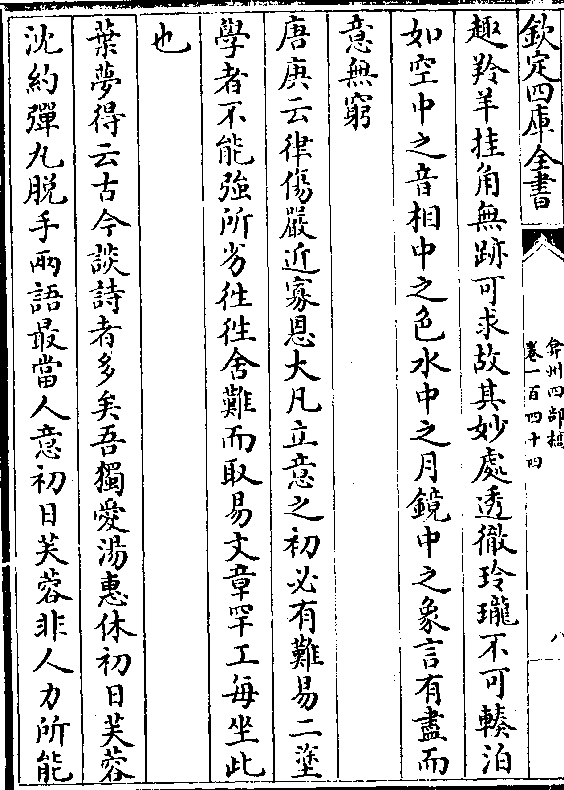 欽定四庫全書
弇州四部稿
卷一百四十四
八
趣羚羊挂角無跡可求故其妙處透徹玲瓏不可輳泊
如空中之音相中之色水中之月鏡中之象言有盡而
意無窮
唐庚云律傷嚴近寡恩大凡立意之初必有難易二塗
學者不能強所劣徃徃舍難而取易文章罕工每坐此
也
葉夢得云古今談詩者多矣吾獨愛湯惠休初日芙蓉
沈約彈丸脱手兩語最當人意初日芙蓉非人力所能